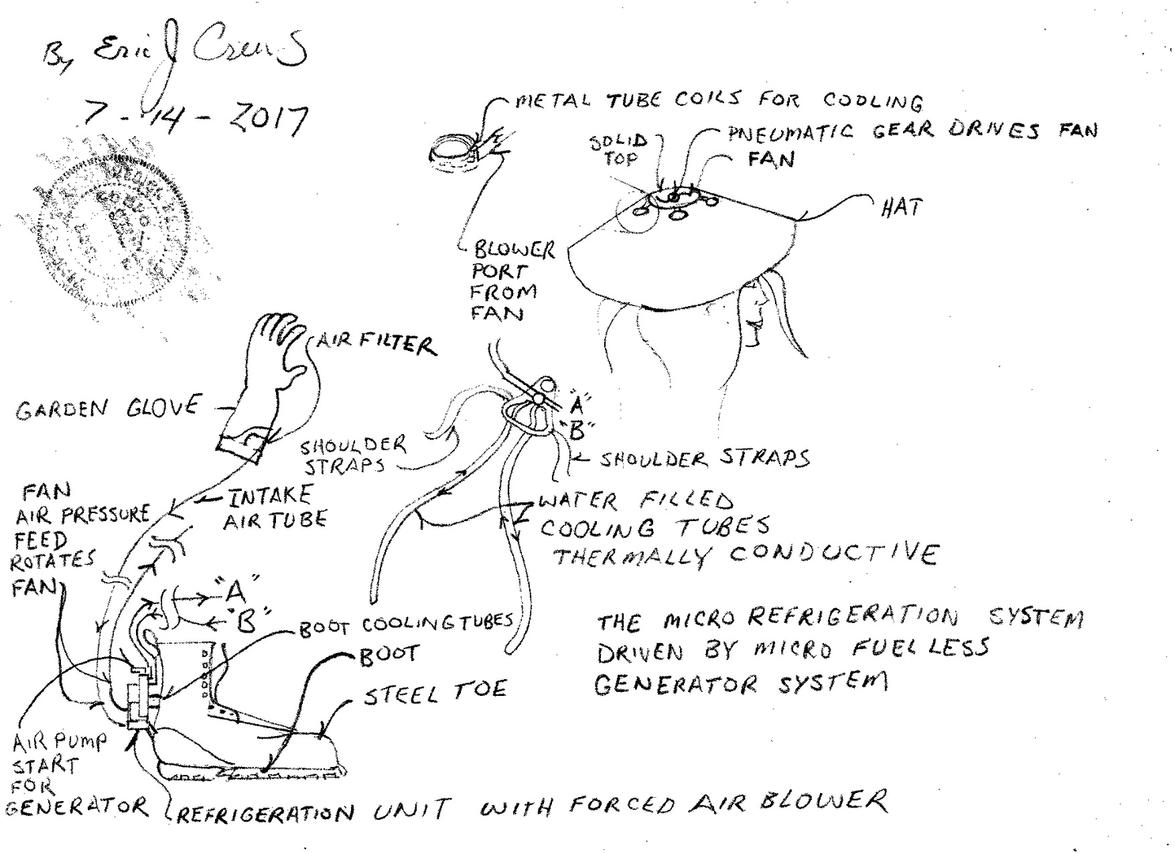 By Eric J Crews
7-14-2017
METAL TUBE COILS FOR COOLING
SOLID
TOP
PNEUMATIC GEAR DRIVES FAN
FAN
HAT
BLOWER
PORT
FROM
FAN
AIR FILTER
GARDEN GLOVE
SHOULDER
STRAPS
"A"
"B"
SHOULDER STRAPS
FAN
AIR PRESSURE
FEED
ROTATES
FAN
INTAKE
AIR TUBE
WATER FILLED
COOLING TUBES
THERMALLY CONDUCTIVE
"A"
"B"
BOOT COOLING TUBES
BOOT
STEEL TOE
THE MICRO REFRIGERATION SYSTEM
DRIVEN BY MICRO FUEL LESS
GENERATOR SYSTEM
AIR PUMP
START
FOR
GENERATOR
REFRIGERATION UNIT WITH FORCED AIR BLOWER